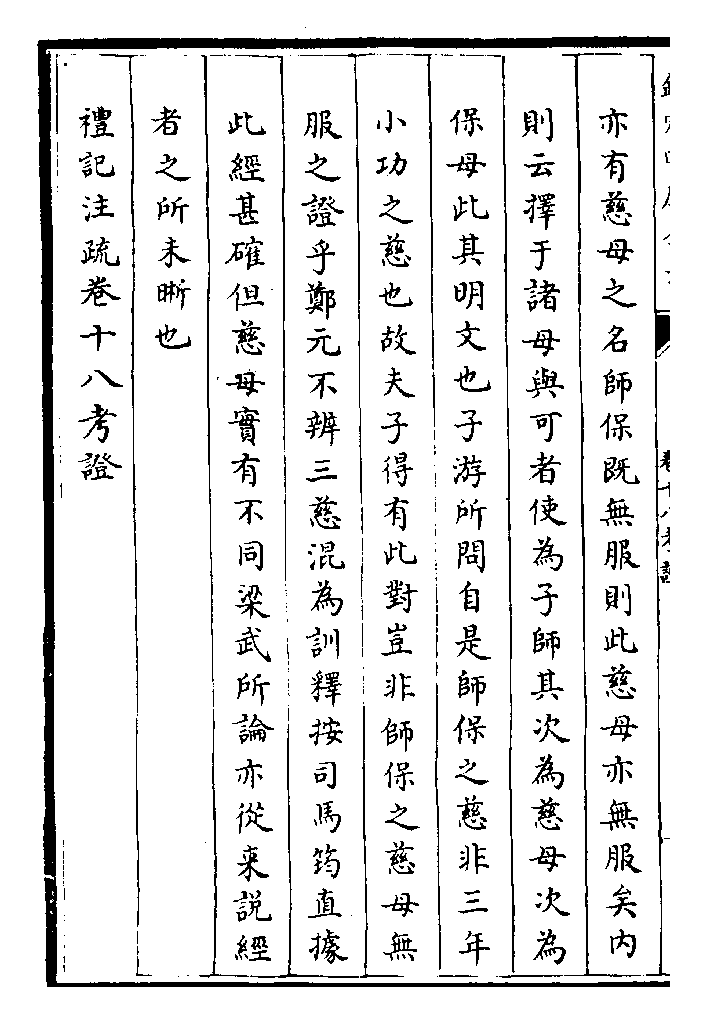 亦有慈母之名師保既無服則此慈母亦無服矣内
則云擇于諸母與可者使為子師其次為慈母次為
保母此其明文也子游所問自是師保之慈非三年
小功之慈也故夫子得有此對豈非師保之慈母無
服之證乎鄭元不辨三慈混為訓釋按司馬筠直據
此經甚確但慈母實有不同梁武所論亦從来說經
者之所未晰也
禮記注疏卷十八考證